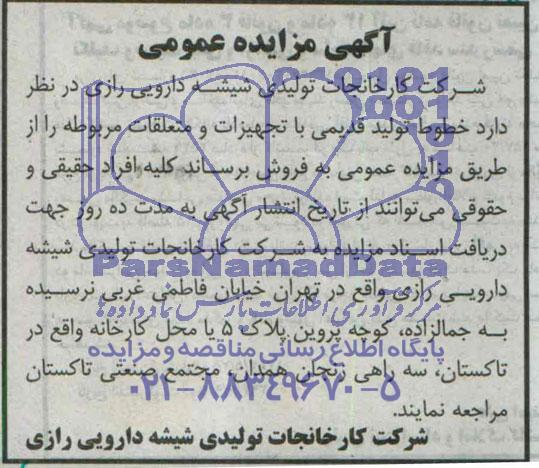 آگهی مزایده عمومی
شرکت کارخانجات تولیدی شیشه دارویی رازی در نظر
دارد خطوط تولید قدیمی با تجهیزات و متعلقات مربوطه را از
طریق مزایده عمومی به فروش برساند کلیه افراد حقیقی و
حقوقی می‌توانند از تاریخ انتشار آگهی به مدت ده روز جهت
دریافت اسناد مزایده به شرکت کارخانجات تولیدی شیشه
دارویی رازی واقع در تهران خیابان فاطمی غربی نرسیده
به جمالزاده، کوچه پروین پلاک ۵ یا محل کارخانه واقع در
تاکستان، سه راهی زنجان همدان، مجتمع صنعتی تاکستان
مراجعه نمایند.
شرکت کارخانجات تولیدی شیشه دارویی رازی
ParsNamadData
مرکز فرآوری اطلاعات پارس نماد داده‌ها
پایگاه اطلاع رسانی مناقصه و مزایده
۰۲۱-۸۸۳۴۹۶۷۰-۵